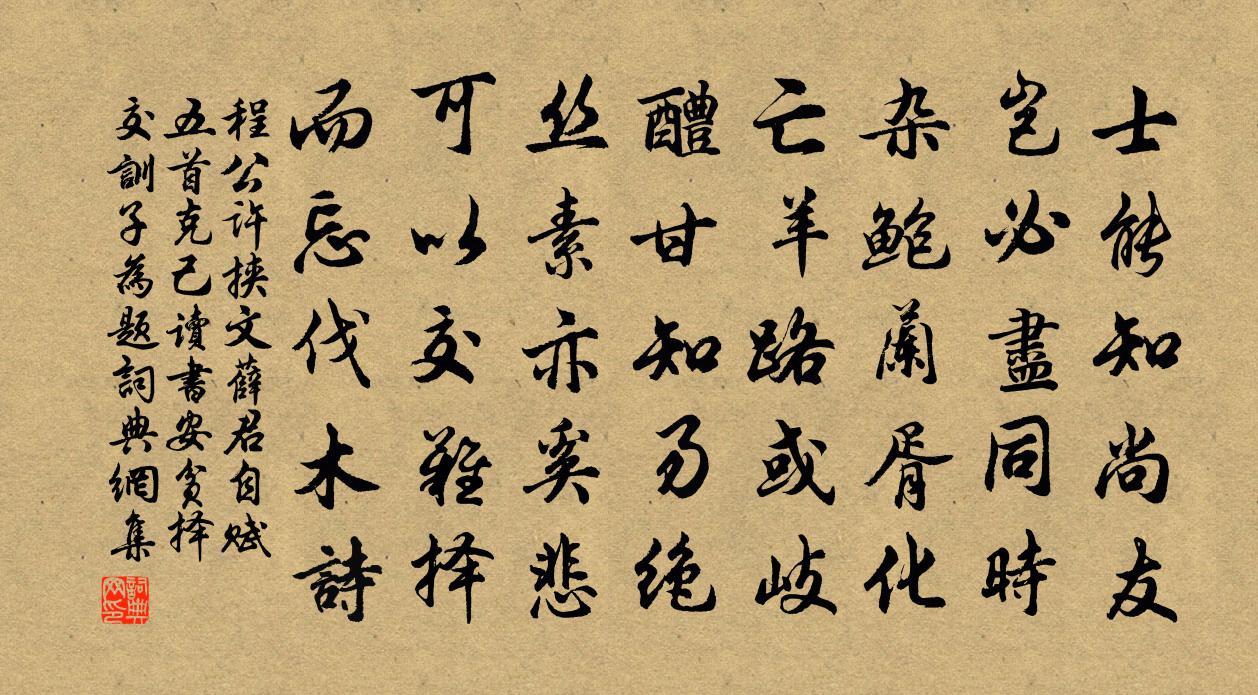 士能知尚友
岂必盡同時
杂鮑蘭胥化
亡羊路或岐
醴甘知易绝
丝素亦奚悲
可以交難择
而忘伐木詩
程公许挟文薛君自赋
五首克己讀書安贫择
交訓子為题詞典網集
詞典网印